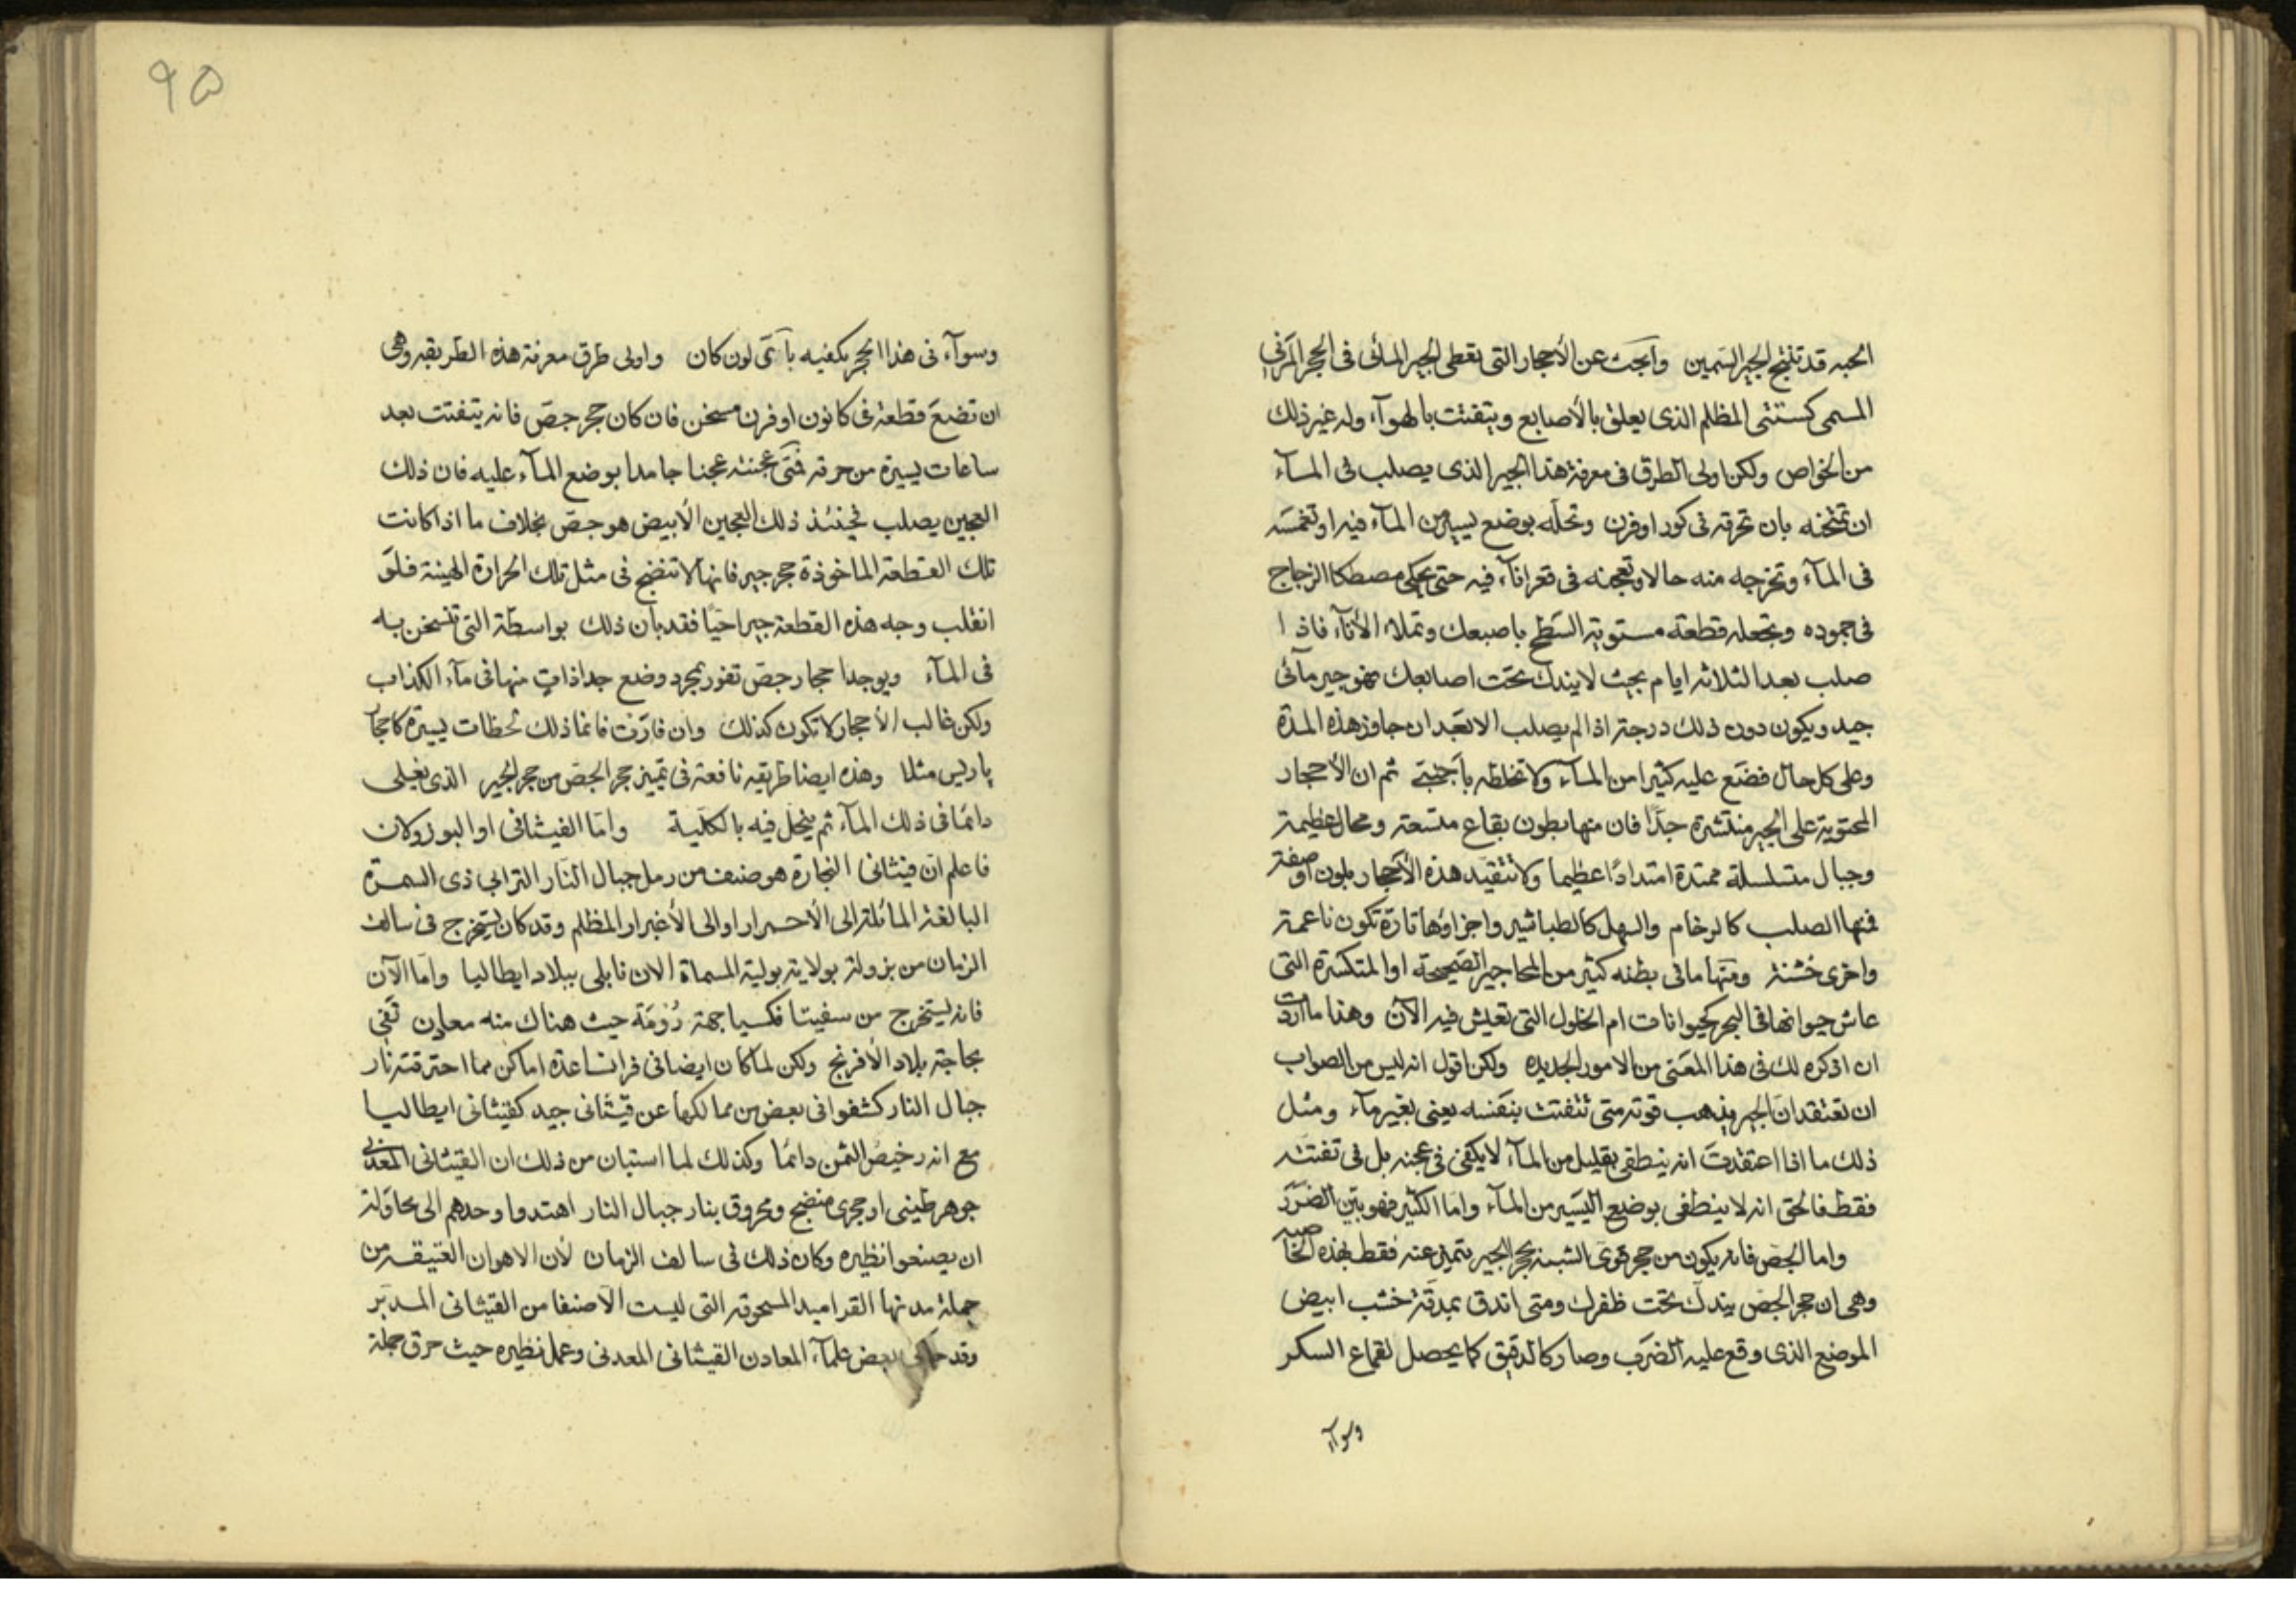 الحبه قد تنتج الجير السمين وابحث عن الأحجار التى تعطى الجير المائى فى الحجر المرنى
المسمى كستنى المظلم الذى يعلق بالأصابع ويتفتت بالهوآء وله غير ذلك
من الخواص ولكن اولى الطرق فى معرفة هذا الجير الذى يصلب فى المآء
ان تمتحنه بان تحرقه فى كور او فرن وتحله بوضع يسير من المآء فيه او تغمسه
فى المآء وتخرجه منه حالا وتعجنه فى قعر انآء فيه حتى يحكى مصطكا الزجاج
فى جموده وتجعله قطعة مستوية السطح باصبعك وتملاء الأنآء فاذا
صلب بعد الثلاثه ايام بحيث لا يندك تحت اصابعك فهو جير مآئى
جيد ويكون دون ذلك درجة اذا لم يصلب الا بعد ان جاوز هذه المدة
وعلى كل حال فضع عليه كثيرا من المآء ولا تخلطه باجنبى ثم ان الأحجار
المحتوية على الجير منتشرة جدًا فان منها بطون بقاع متسعة ومحال عظيمة
وجبال متسلسلة ممتدة امتدادًا عظيما ولا تتقيد هذه الأحجار بلون او صفة
فمنها الصلب كالرخام والسهل كالطباشير واجزاؤها تارة تكون ناعمة
واخرى خشنة ومنها ما فى بطنه كثير من المحاجير الصحيحة او المتكسرة التى
عاش حيوانها فى البحر كحيوانات ام الخلول التى تعيش فيه الآن وهذا ما اردت
ان اذكره لك فى هذا المعنى من الامور الجديده ولكن اقول انه ليس من الصواب
ان تعتقد ان الجير يذهب قوته متى تفتت بنفسه يعنى بغير مآء ومثل
ذلك ما اذا اعتقدت انه ينطفى بقليل من المآء لا يكفى فى عجنه بل فى تفتته
فقط فالحق انه لا ينطفى بوضع اليسير من المآء واما الكثير فهو بيّن الضرر
واما الجص فانه يكون من حجر قوى الشبه بحجر الجير يتميز عنه فقط بهذه الخاصيه
وهى ان حجر الجص يندك تحت ظفرك ومتى اندق بمدقة خشب ابيض
الموضع الذى وقع عليه الضرب وصار كالدقيق كما يحصل لقماع السكر
وسوآء
٩٥
وسوآء فى هذا الحجر بكفيه بآى لون كان واولى طرق معرفة هذه الطريقه وهى
ان تضع قطعة فى كانون او فرن مسخن فان كان حجر جص فانه يتفتت بعد
ساعات يسيرة من حرقه فمتى عجنته عجنا جامدا بوضع المآء عليه فان ذلك
العجين يصلب فحينئذ ذلك العجين الأبيض هو جص بخلاف ما اذا كانت
تلك القطعة الماخوذة حجر جير فانها لا تنضج فى مثل تلك الحرارة الهينة فلو
انقلب وجه هذه القطعة جيرا حيًا فقد بان ذلك بواسطة التى تسخن به
فى المآء ويوجد احجار جص تفور بمجرد وضع جداذات منها فى مآء الكذاب
ولكن غالب الأحجار لا تكون كذلك وان فارت فانما ذلك لحظات يسيرة كاحجار
باريس مثلا وهذه ايضا طريقه نافعة فى تمييز حجر الجص من حجر الجير الذى يغلى
دائما فى ذلك المآء ثم ينحل فيه بالكلية واما القيشانى او البوزولان
فاعلم ان قيشانى التجارة هو صنف من رمل جبال النار الترابى ذى السمرة
البالغة المائلة الى الأحمرار او الى الأغبرار المظلم وقد كان يستخرج فى سالف
الزمان من بزولة بولاية بولية المسماة الان نابلى ببلاد ايطاليا واما الآن
فانه يستخرج من سفيتا فكسيا جهة رومة حيث هناك منه معادن تفى
بحاجة بلاد الأفرنج ولكن لما كان ايضا فى فرانسا عدة اماكن مما احترقته نار
جبال النار كشفوا فى بعض من ممالكها عن قيشانى جيد كقيشانى ايطاليا
مع انه رخيص الثمن دائما وكذلك لما استبان من ذلك ان القيشانى المعدنى
جوهر طينى او حجرى منضج ومحروق بنار جبال النار اهتدوا وحدهم الى محاولة
ان يصنعوا نظيره وكان ذلك فى سالف الزمان لأن الاهوان العتيقه من
جملة مدنها القراميد المسحوقة التى ليست الا صنفا من القيشانى المدبر
وقد حاكى بعض علمآء المعادن القيشانى المعدنى وعمل نظيره حيث حرق جملة